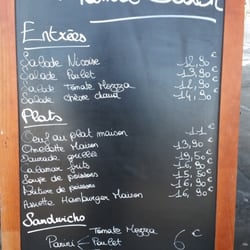 Entrées
Salade Nicoise 12,90€
Salade Poulet 13,90
Salade Tomate Mozza 12,90
Salade chèvre chaud 14,90
Plats
Oeuf au plat maison 11
Omelette Maison 13,90
Daurade grillée 19,50
Calamar frits 16,90
Soupe de poissons 15,90
Friture de poissons 16,90
Assiette Hamburger Maison 16,90
Sandwichs
Tomate Mozza
Panini Poulet 6€